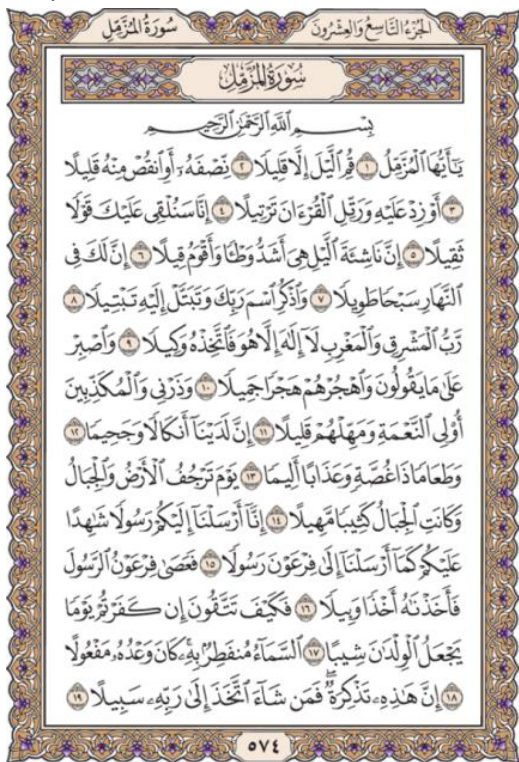 سُورَةُ المُزَّمِّل الجُزْءُ التَّاسِعُ وَالعِشْرُونَ
سُورَةُ المُزَّمِّل
بِسْمِ ٱللَّهِ ٱلرَّحْمَٰنِ ٱلرَّحِيمِ
يَٰٓأَيُّهَا ٱلْمُزَّمِّلُ ١ قُمِ ٱلَّيْلَ إِلَّا قَلِيلًا ٢ نِّصْفَهُۥٓ أَوِ ٱنقُصْ مِنْهُ قَلِيلًا
٣ أَوْ زِدْ عَلَيْهِ وَرَتِّلِ ٱلْقُرْءَانَ تَرْتِيلًا ٤ إِنَّا سَنُلْقِى عَلَيْكَ قَوْلًا
ثَقِيلًا ٥ إِنَّ نَاشِئَةَ ٱلَّيْلِ هِىَ أَشَدُّ وَطْـًٔا وَأَقْوَمُ قِيلًا ٦ إِنَّ لَكَ فِى
ٱلنَّهَارِ سَبْحًا طَوِيلًا ٧ وَٱذْكُرِ ٱسْمَ رَبِّكَ وَتَبَتَّلْ إِلَيْهِ تَبْتِيلًا ٨
رَّبُّ ٱلْمَشْرِقِ وَٱلْمَغْرِبِ لَآ إِلَٰهَ إِلَّا هُوَ فَٱتَّخِذْهُ وَكِيلًا ٩ وَٱصْبِرْ
عَلَىٰ مَا يَقُولُونَ وَٱهْجُرْهُمْ هَجْرًا جَمِيلًا ١٠ وَذَرْنِى وَٱلْمُكَذِّبِينَ
أُو۟لِى ٱلنَّعْمَةِ وَمَهِّلْهُمْ قَلِيلًا ١١ إِنَّ لَدَيْنَآ أَنكَالًا وَجَحِيمًا ١٢
وَطَعَامًا ذَا غُصَّةٍ وَعَذَابًا أَلِيمًا ١٣ يَوْمَ تَرْجُفُ ٱلْأَرْضُ وَٱلْجِبَالُ
وَكَانَتِ ٱلْجِبَالُ كَثِيبًا مَّهِيلًا ١٤ إِنَّآ أَرْسَلْنَآ إِلَيْكُمْ رَسُولًا شَٰهِدًا
عَلَيْكُمْ كَمَآ أَرْسَلْنَآ إِلَىٰ فِرْعَوْنَ رَسُولًا ١٥ فَعَصَىٰ فِرْعَوْنُ ٱلرَّسُولَ
فَأَخَذْنَٰهُ أَخْذًا وَبِيلًا ١٦ فَكَيْفَ تَتَّقُونَ إِن كَفَرْتُمْ يَوْمًا
يَجْعَلُ ٱلْوِلْدَٰنَ شِيبًا ١٧ ٱلسَّمَآءُ مُنفَطِرٌۢ بِهِۦ كَانَ وَعْدُهُۥ مَفْعُولًا
١٨ إِنَّ هَٰذِهِۦ تَذْكِرَةٌ ۖ فَمَن شَآءَ ٱتَّخَذَ إِلَىٰ رَبِّهِۦ سَبِيلًا ١٩
٥٧٤